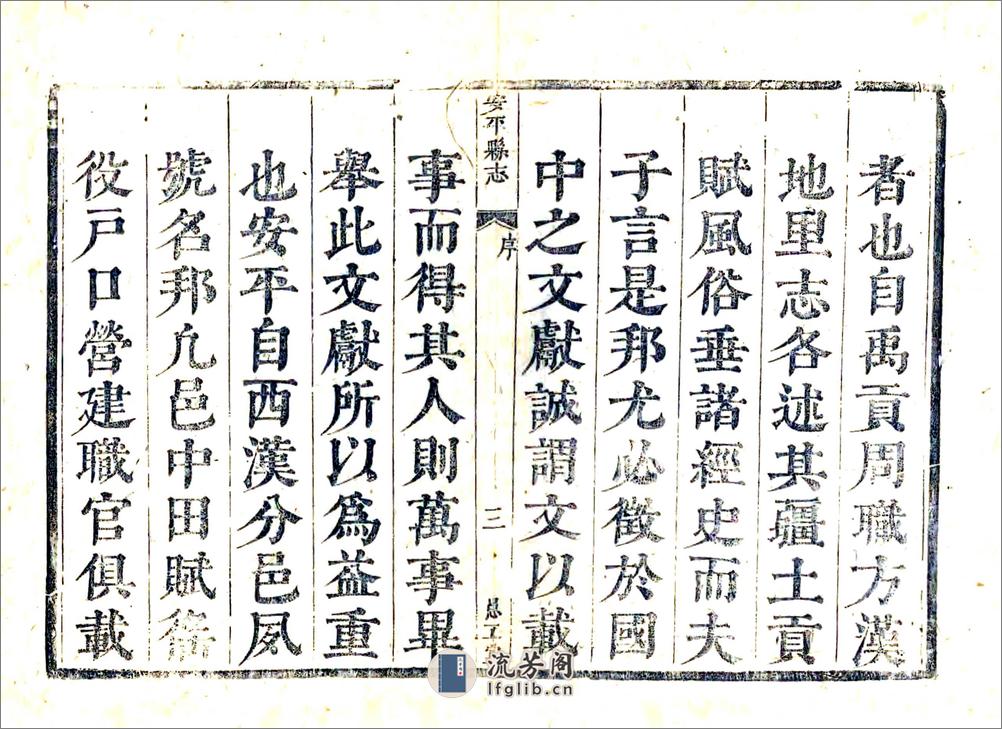 者也自禹貢周職方漢
地里志各述其疆土貢
賦風俗垂諸經史而夫
子言是邦尤必徵於國
中之文獻誠謂文以載
安平縣志
序
三
事而得其人則萬事畢
舉此文獻所以為益重
也安平自西漢分邑夙
號名邦凢邑中田賦徭
役戸口營建職官俱載
流芳阁
lfglib.cn